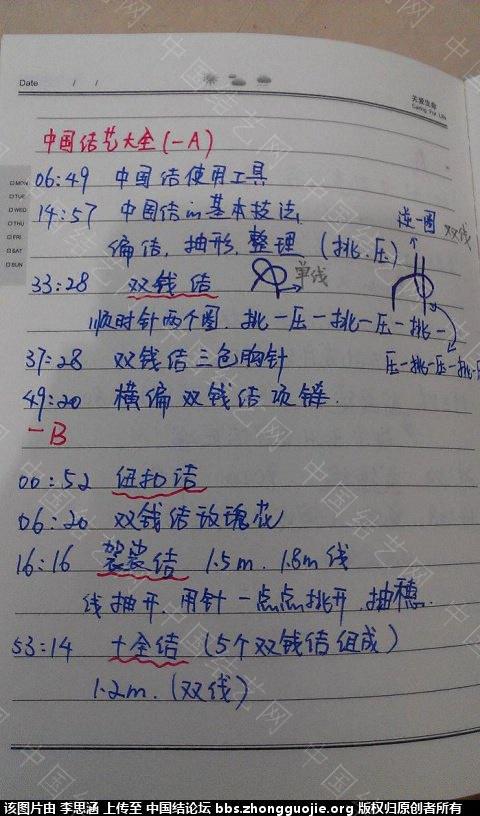 Date / /
关爱生命
Caring For Life
中国结艺大全(一A)
MON
TUE
WED
THU
FRI
SAT
SUN
06:49 中国结使用工具
14:57 中国结的基本技法
编结、抽形、整理(挑、压)
逆一圈 双线
33:28 双钱结 单线
顺时针两个圈、挑一压一挑一压一挑一
压一挑一压一挑一
37:28 双钱结三色胸针
49:20 横编双钱结项链.
一B
00:52 纽扣结
06:20 双钱结玫瑰花
16:16 袈裟结 1.5m、1.8m线
线抽开、用针一点点挑开、抽穗.
53:14 十全结(5个双钱结组成)
1.2m.(双线)
中国结艺网
该图片由 李思涵 上传至 中国结论坛 bbs.zhongguojie.org 版权归原创者所有